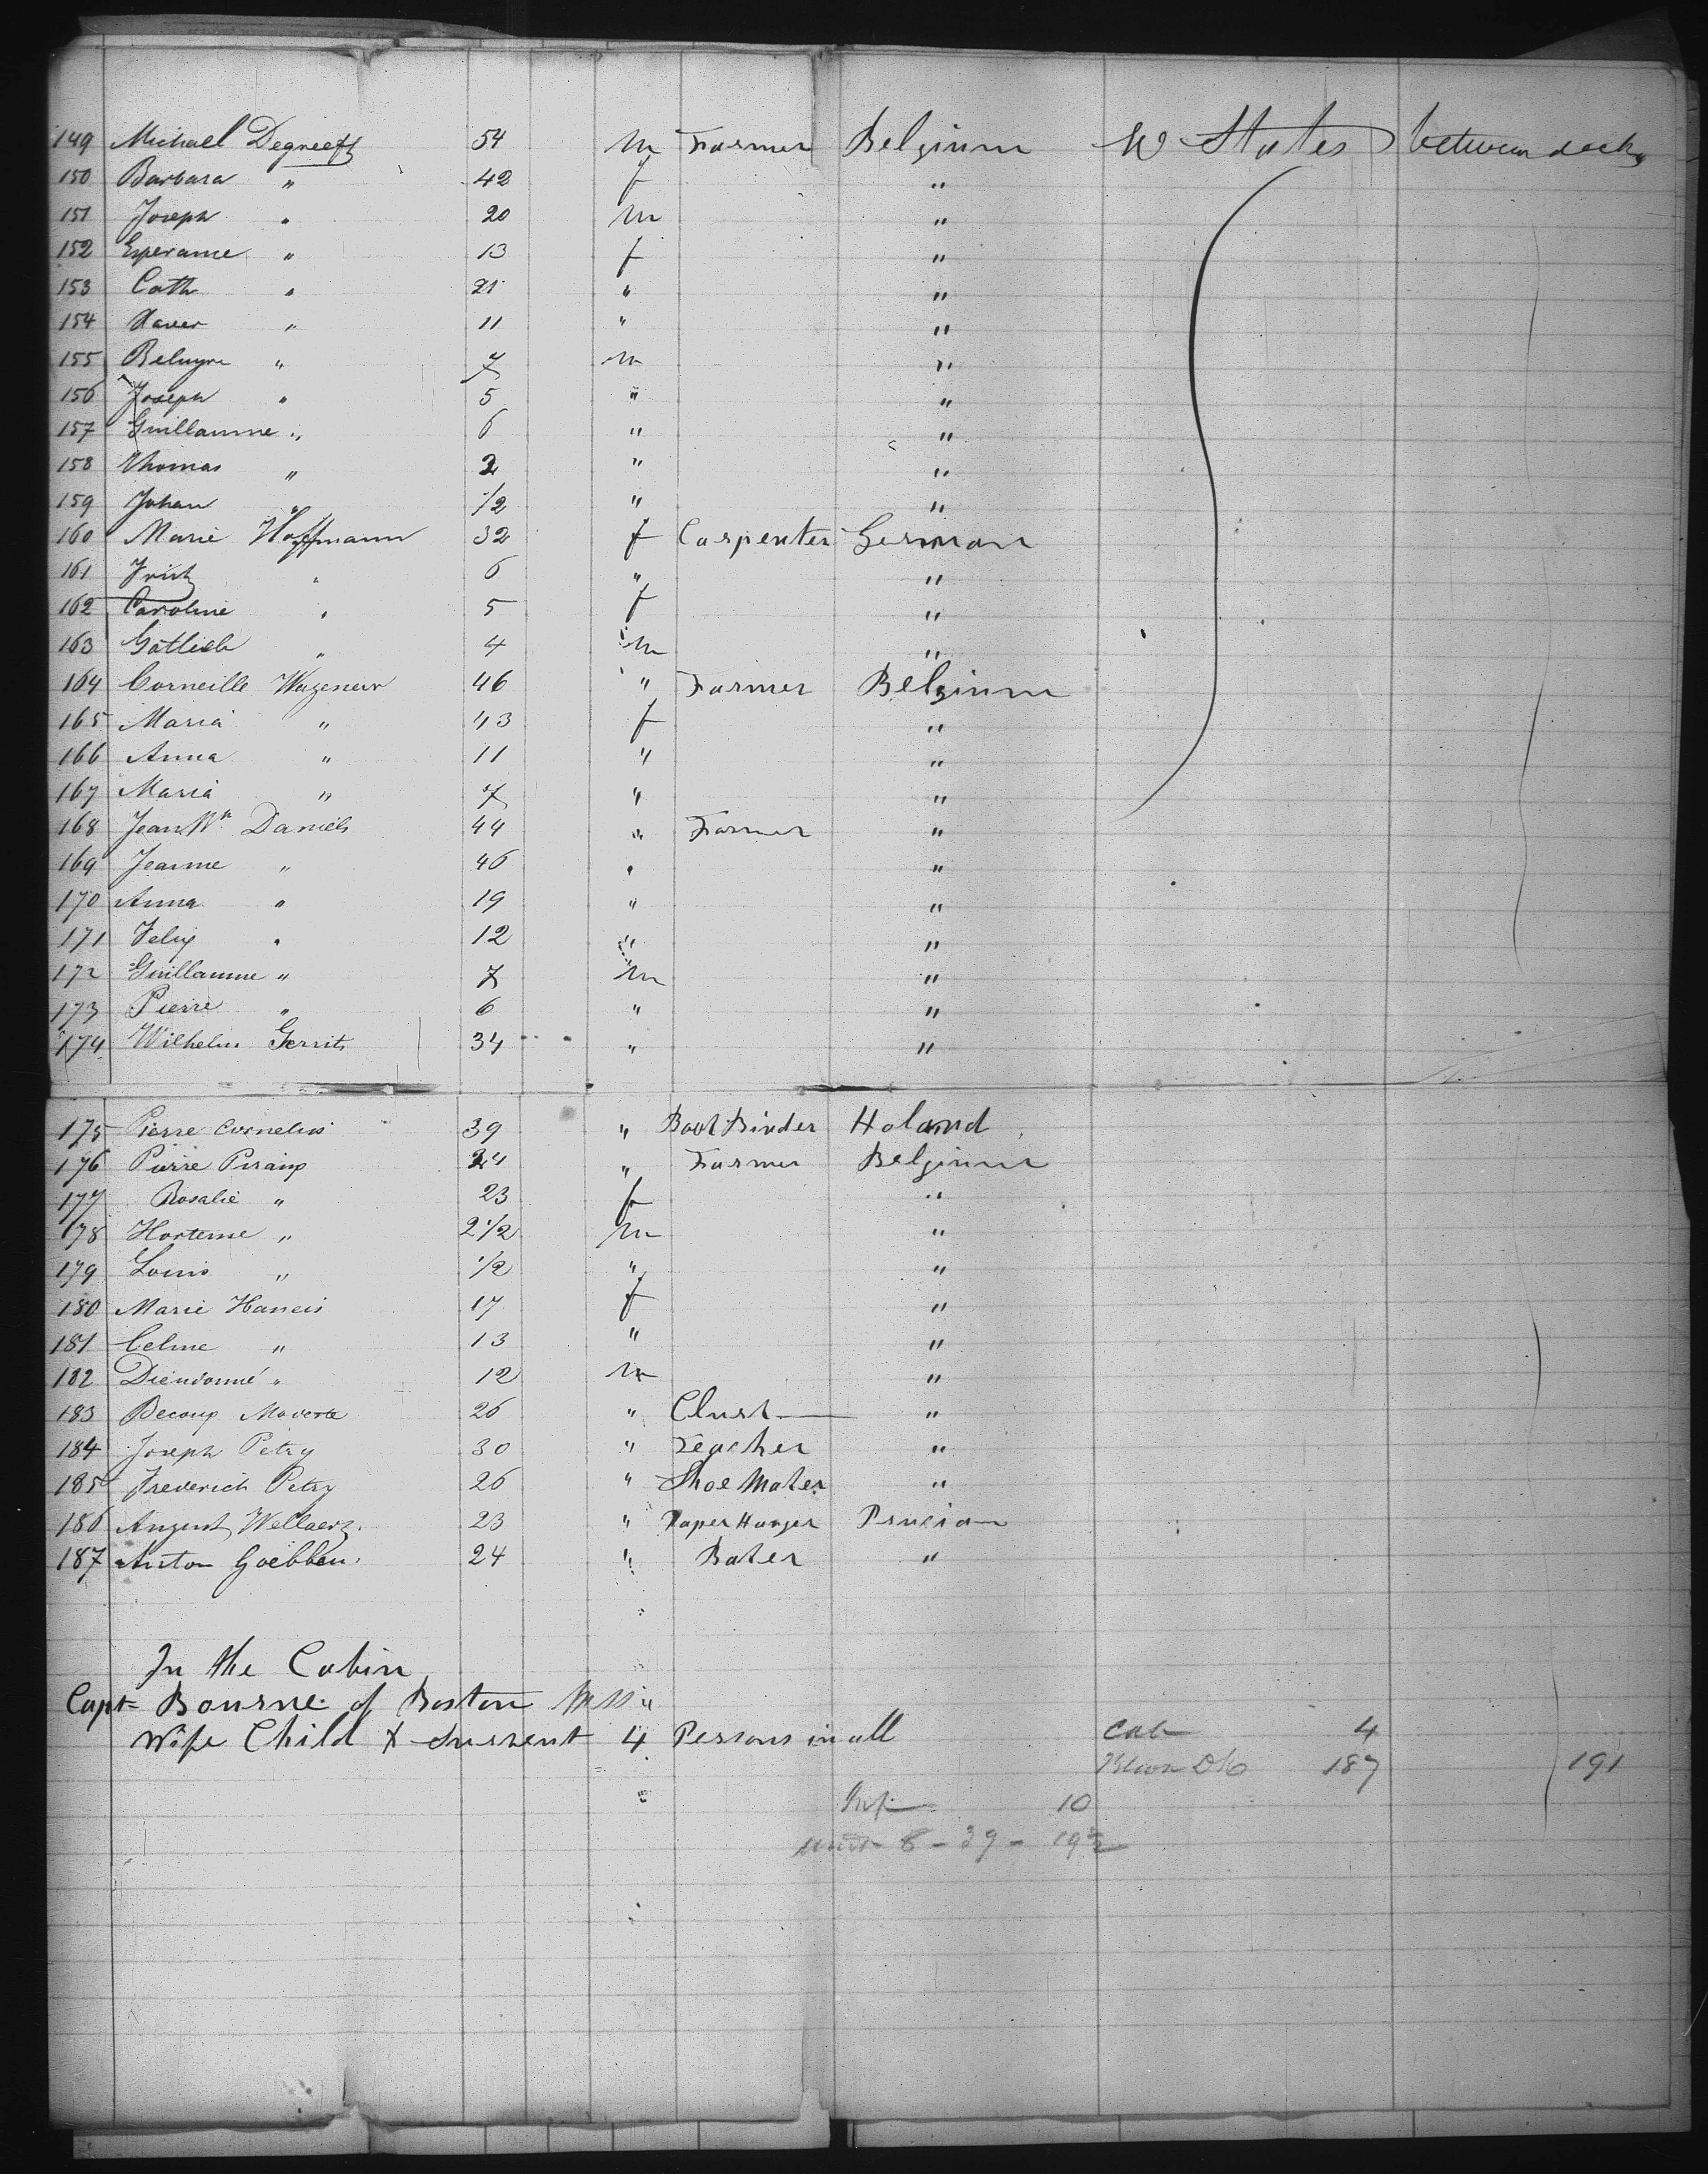 149 Michael Degreeff 54 m Farmer Belgium W States between decks
150 Barbara " 42 f "
151 Joseph " 20 m "
152 Esperance " 13 f "
153 Cath " 21 " "
154 Xaver " 11 " "
155 " 7 m "
156 Joseph " 5 " "
157 Guillaume " 6 " "
158 Thomas " 2 " "
159 Johan " 1/2 " "
160 Marie Hoffmann 32 f Carpenter German
161 Fritz " 6 " "
162 Caroline " 5 f "
163 Gotlieb " 4 m "
164 Corneille Wagener 46 " Farmer Belgium
165 Maria " 43 f "
166 Anna " 11 " "
167 Maria " 7 " "
168 Jean Wm Daniels 44 " Farmer "
169 Jeanne " 46 " "
170 Anna " 19 " "
171 Felix " 12 " "
172 Guillaume " 7 m "
173 Pierre " 6 " "
174 Wilhelm Gerrits 34 " "
175 Pierre Cornelis 39 " Book Binder Holand
176 Pierre 24 " Farmer Belgium
177 Rosalie " 23 f "
178 Hortense " 2 1/2 m "
179 Louis " 1/2 " "
180 Marie 17 f "
181 Celine " 13 " "
182 Dieudonné " 12 m "
183 26 " "
184 Joseph Petry 30 " Teacher "
185 Frederich Petry 26 " Shoe Maker "
186 August 23 " Paper Hanger Prusian
187 Anton Goebben 24 " Baker "
In the Cabin
Capt Bourne of Boston Mss
Wife Child & 4 Persons in all Cab 4
187 191
Inf 10
8 - 39 -